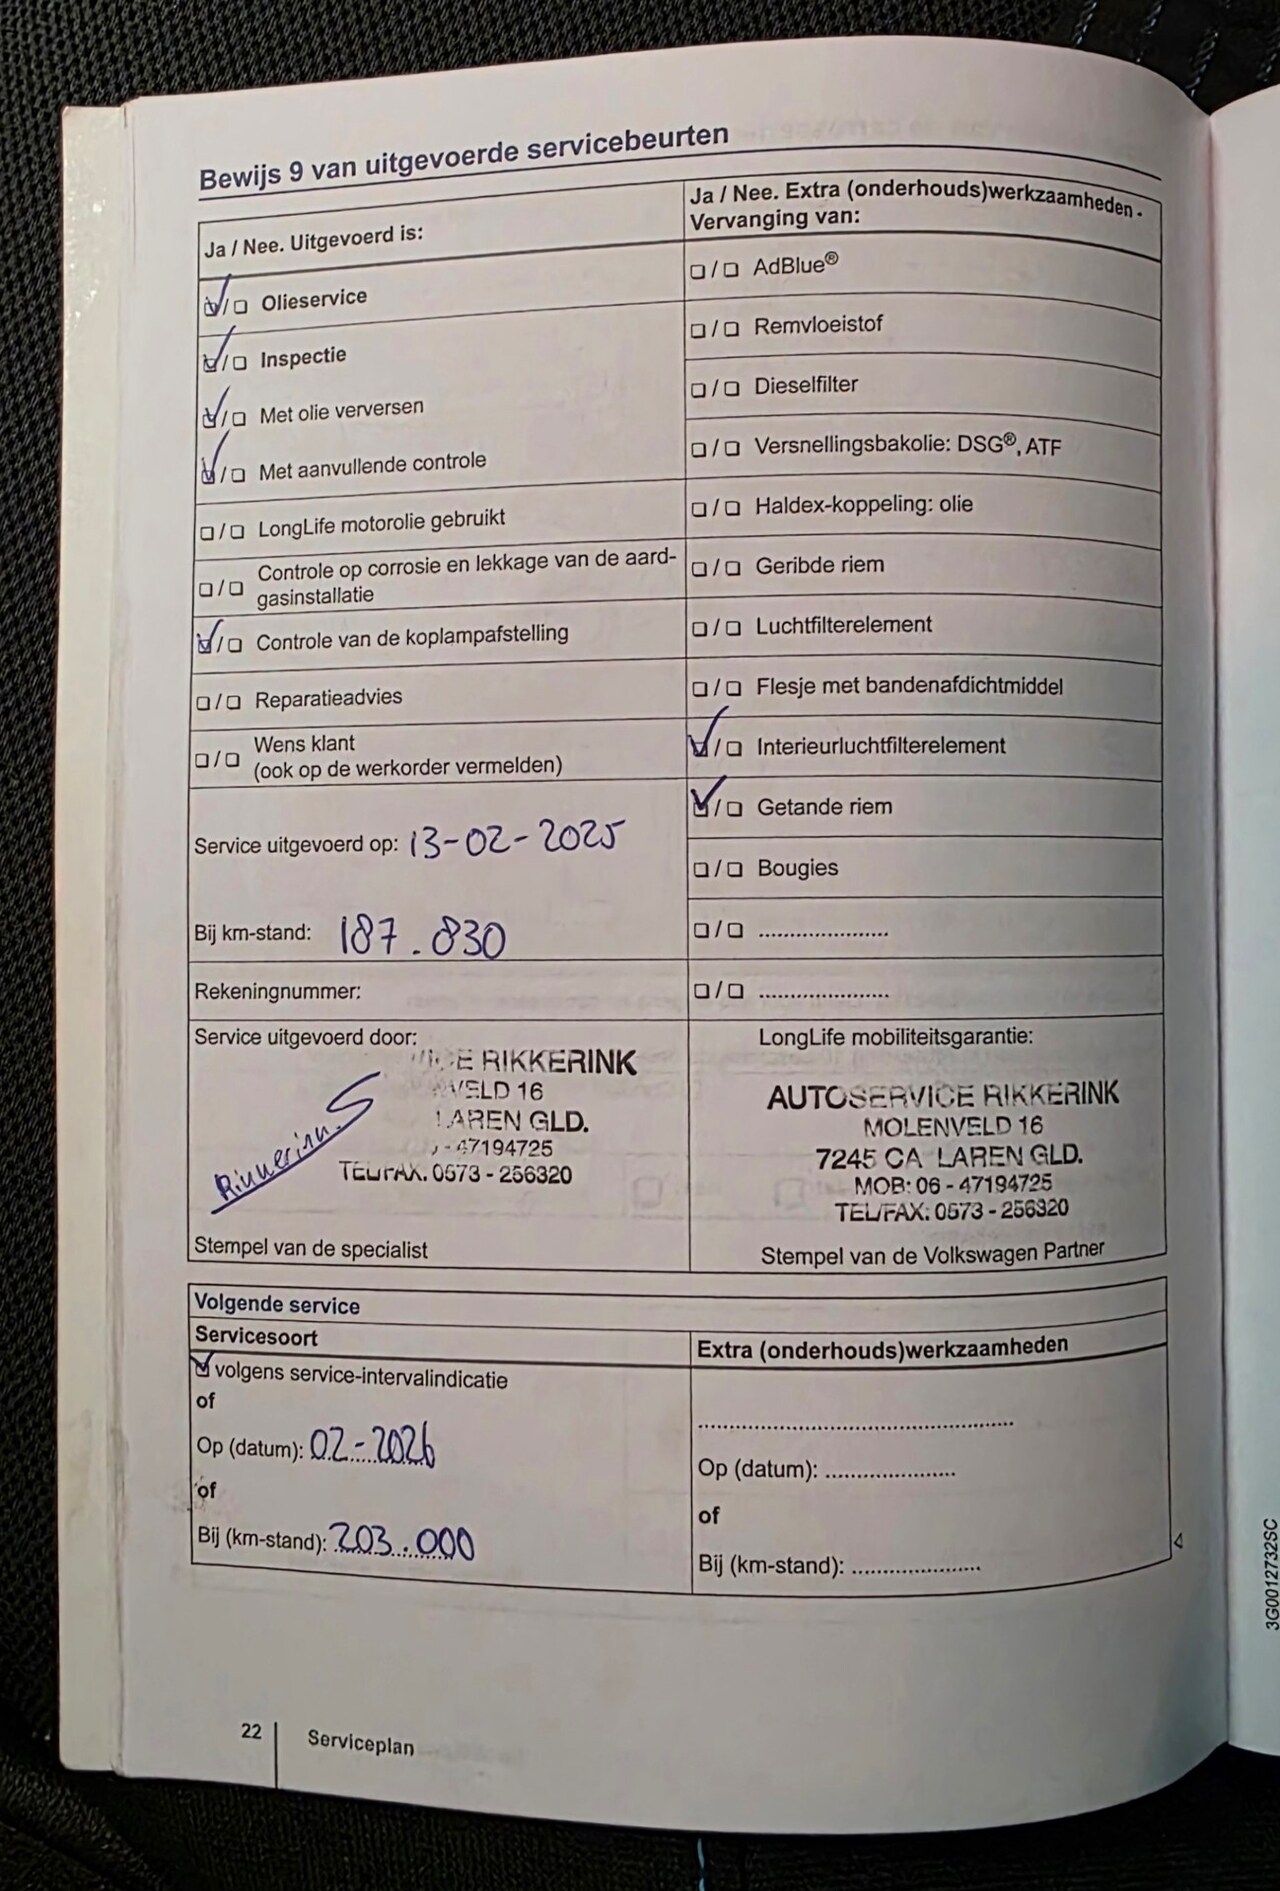 Bewijs 9 van uitgevoerde servicebeurten
Ja / Nee. Uitgevoerd is:
Olieservice
Inspectie
Met olie verversen
Met aanvullende controle
LongLife motorolie gebruikt
Controle op corrosie en lekkage van de aard-
gasinstallatie
Controle van de koplampafstelling
Reparatieadvies
Wens klant
(ook op de werkorder vermelden)
Service uitgevoerd op: 13-02-2025
Bij km-stand: 187.830
Rekeningnummer:
Service uitgevoerd door:
RIKKERINK
16
LAREN GLD.
- 47194725
TEL/FAX. 0573 - 256320
Stempel van de specialist
Ja / Nee. Extra (onderhouds)werkzaamheden -
Vervanging van:
AdBlue®
Remvloeistof
Dieselfilter
Versnellingsbakolie: DSG®, ATF
Haldex-koppeling: olie
Geribde riem
Luchtfilterelement
Flesje met bandenafdichtmiddel
Interieurluchtfilterelement
Getande riem
Bougies
LongLife mobiliteitsgarantie:
AUTOSERVICE RIKKERINK
MOLENVELD 16
7245 CA LAREN GLD.
MOB: 06 - 47194725
TEL/FAX: 0573 - 256320
Stempel van de Volkswagen Partner
Volgende service
Servicesoort
volgens service-intervalindicatie
of
Op (datum): 02-2026
of
Bij (km-stand): 203.000
Extra (onderhouds)werkzaamheden
Op (datum):
of
Bij (km-stand):
22
Serviceplan
3G0012732SC